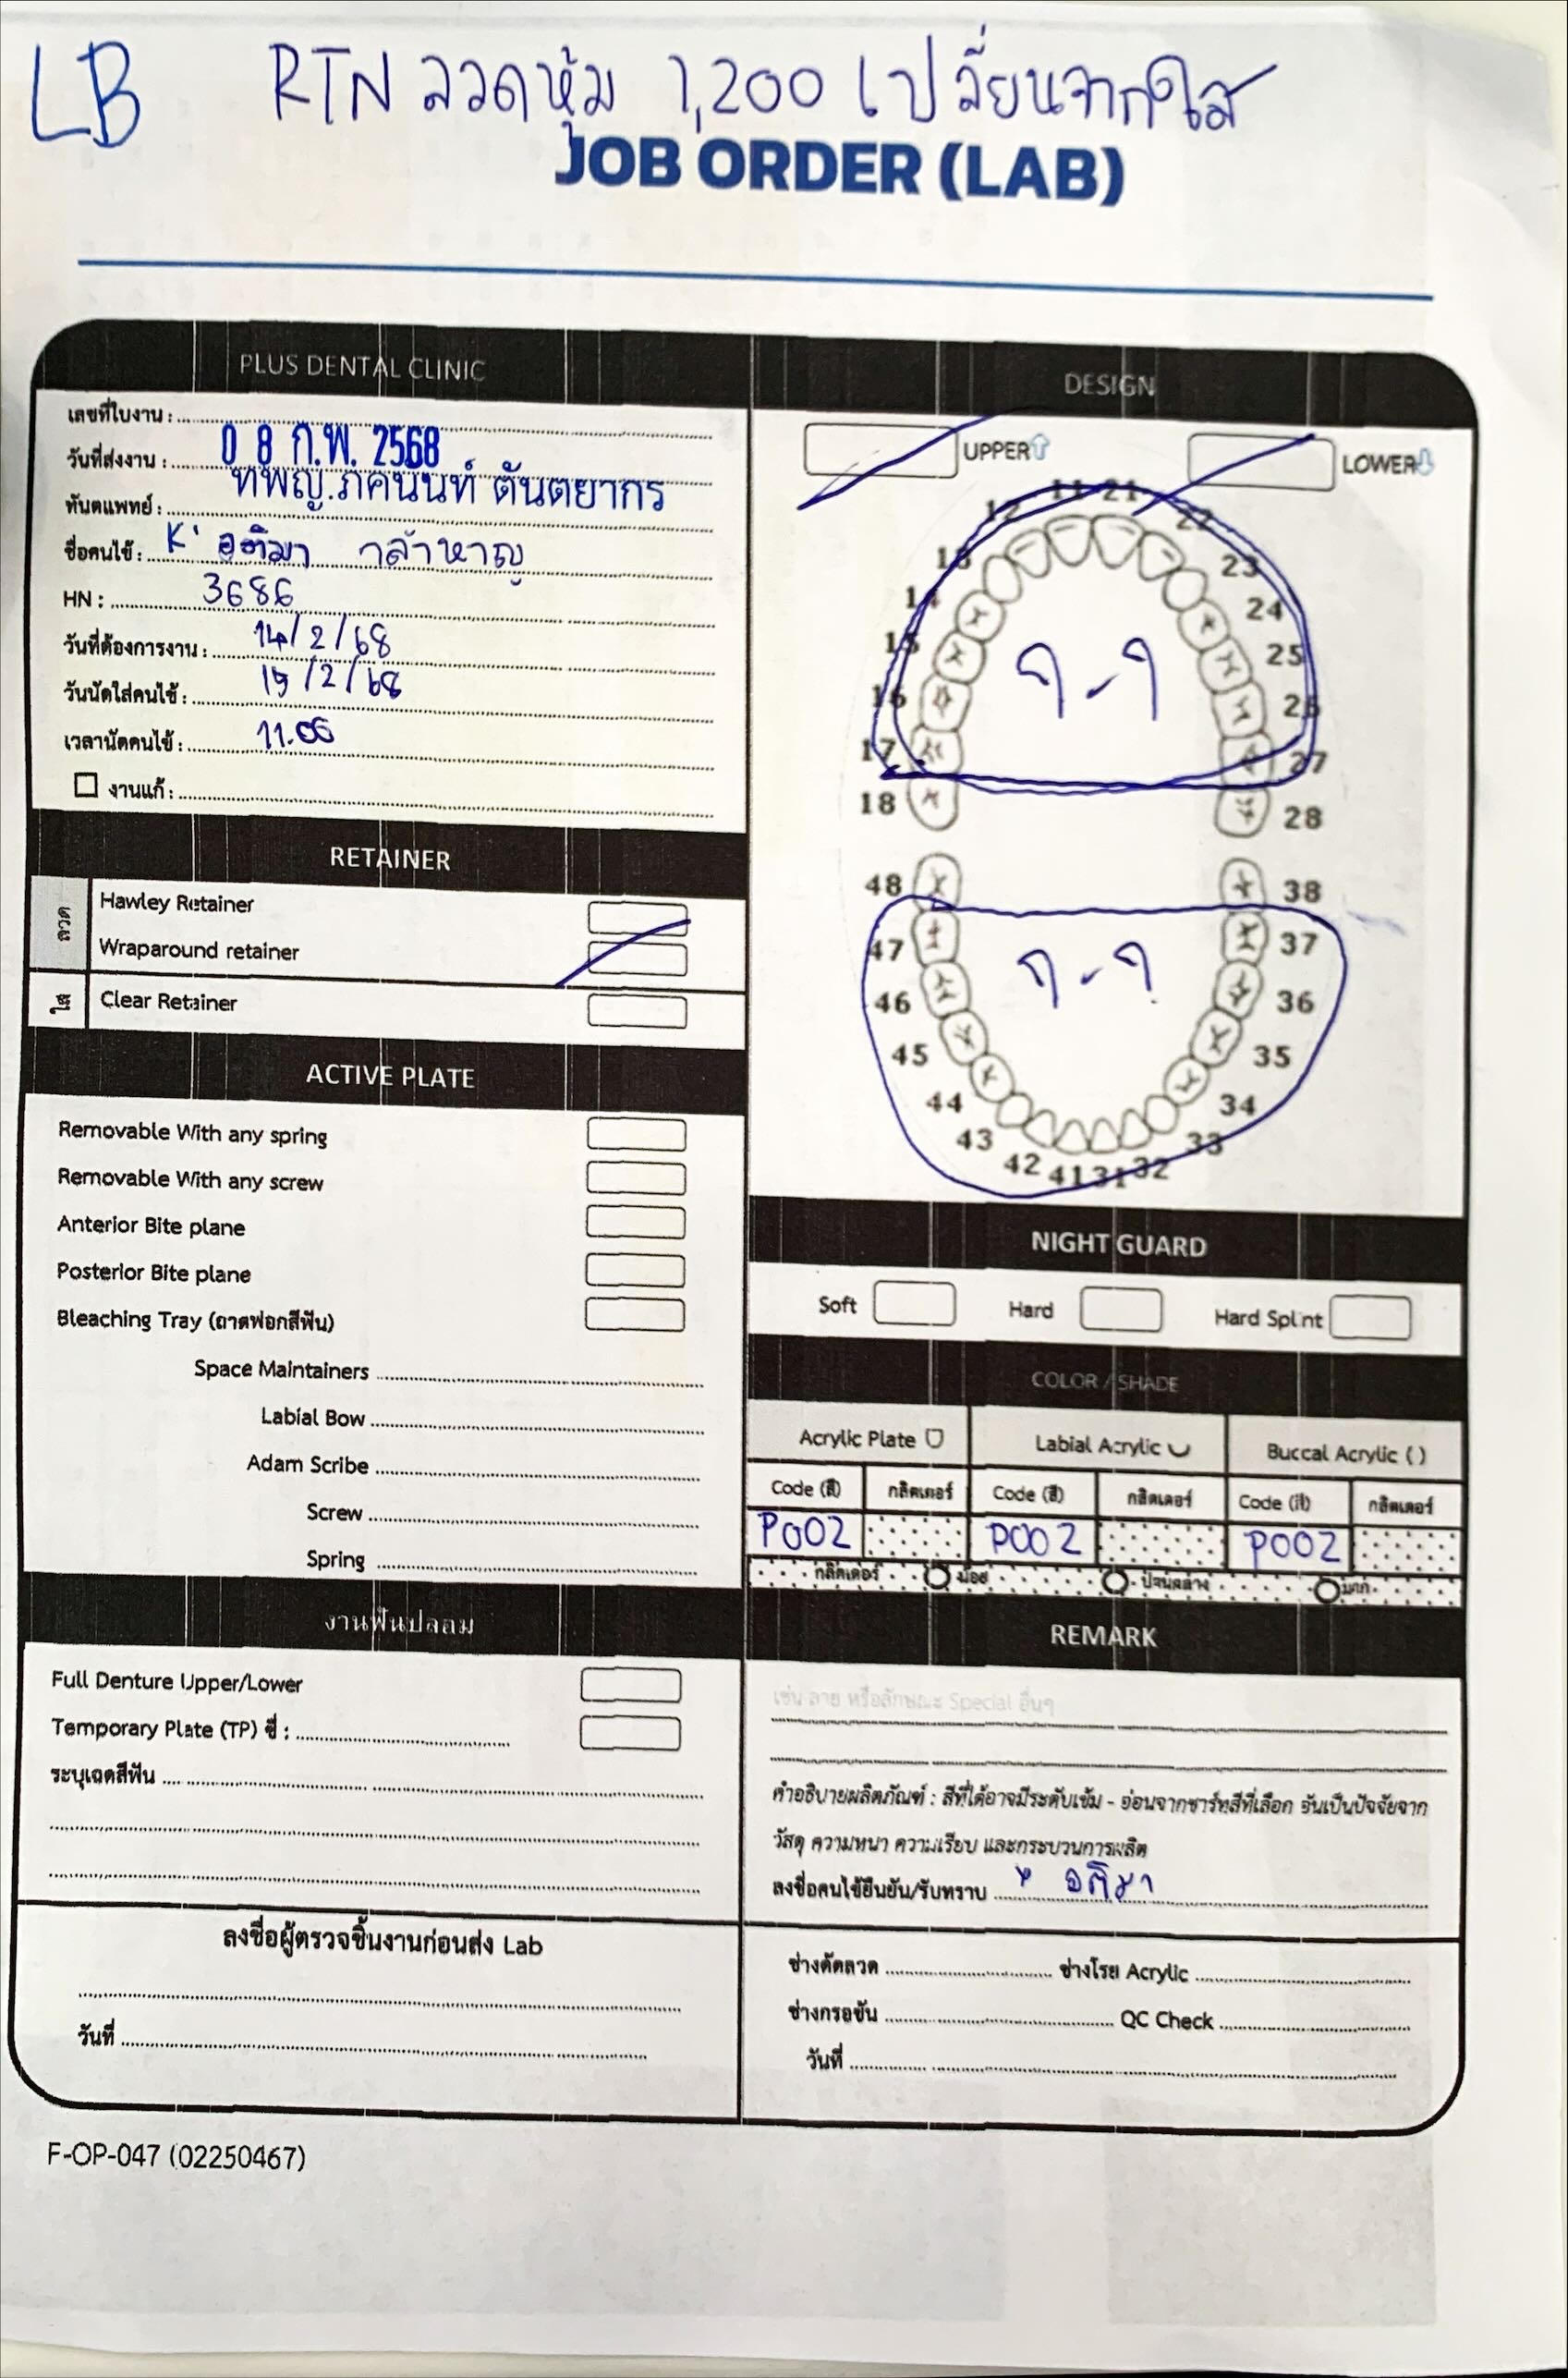 LB RTN ลวดหุ้ม 1,200 เปลี่ยนจากใส
JOB ORDER (LAB)
PLUS DENTAL CLINIC
เลขที่ใบงาน :
วันที่ส่งงาน : 0 8 ก.พ. 2568
ทันตแพทย์ : ทพญ.ภคนันท์ ตันตยากร
ชื่อคนไข้ : K' อติมา กล้าหาญ
HN : 3686
วันที่ต้องการงาน : 14/2/68
วันนัดใส่คนไข้ : 15/2/68
เวลานัดคนไข้ : 11.00
งานแก้ :
RETAINER
ลวด
Hawley Retainer
Wraparound retainer
ใส
Clear Retainer
ACTIVE PLATE
Removable With any spring
Removable With any screw
Anterior Bite plane
Posterior Bite plane
Bleaching Tray (ถาดฟอกสีฟัน)
Space Maintainers
Labial Bow
Adam Scribe
Screw
Spring
งานฟันปลอม
Full Denture Upper/Lower
Temporary Plate (TP) ซี่ :
ระบุเฉดสีฟัน
ลงชื่อผู้ตรวจชิ้นงานก่อนส่ง Lab
วันที่
DESIGN
UPPER LOWER
11 21
12 22
13 23
14 24
15 25
16 26
17 27
18 28
7-7
48 38
47 37
46 36
45 35
44 34
43 33
42 41 31 32
7-7
NIGHT GUARD
Soft Hard Hard Splint
COLOR / SHADE
Acrylic Plate Labial Acrylic Buccal Acrylic ( )
Code (สี) กลิตเตอร์ Code (สี) กลิตเตอร์ Code (สี) กลิตเตอร์
P002 P002 P002
กลิตเตอร์ น้อย ปานกลาง มาก
REMARK
เช่น ลาย หรือลักษณะ Special อื่นๆ
คำอธิบายผลิตภัณฑ์ : สีที่ได้อาจมีระดับเข้ม - อ่อนจากชาร์ทสีที่เลือก อันเป็นปัจจัยจาก
วัสดุ ความหนา ความเรียบ และกระบวนการผลิต
ลงชื่อคนไข้ยืนยัน/รับทราบ x อติมา
ช่างดัดลวด ช่างโรย Acrylic
ช่างกรอขัน QC Check
วันที่
F-OP-047 (02250467)